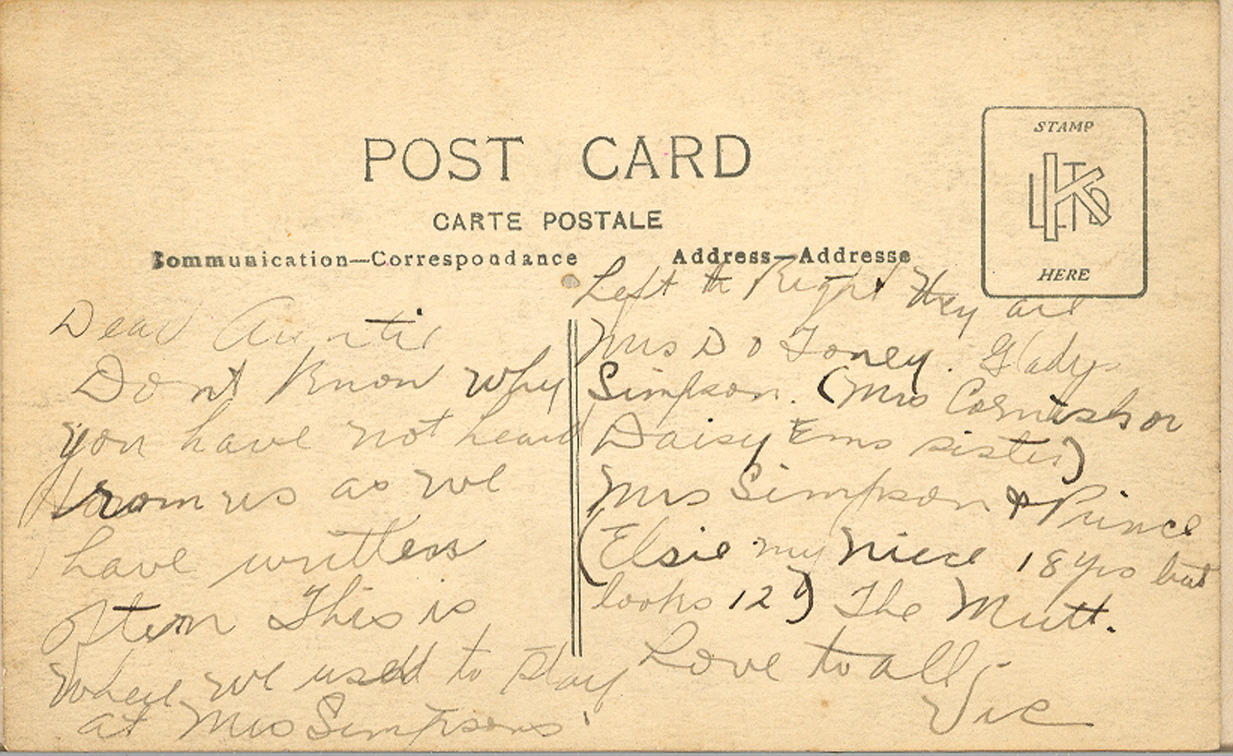 POST CARD
CARTE POSTALE
Communication—Correspondance
Address—Addresse
STAMP
HERE
Dear Auntie
Dont Know why
you have not heard
from us as we
have written
often This is
Where we used to stay
at Mrs Simpsons'
Left to Right they are
Mrs D O Toney. Gladys
Simpson. (Mrs Cornish or
Daisy Ems sister)
Mrs Simpson & Prince
(Elsie my niece 18 yrs but
looks 12) The Mutt.
Love to all
Vic